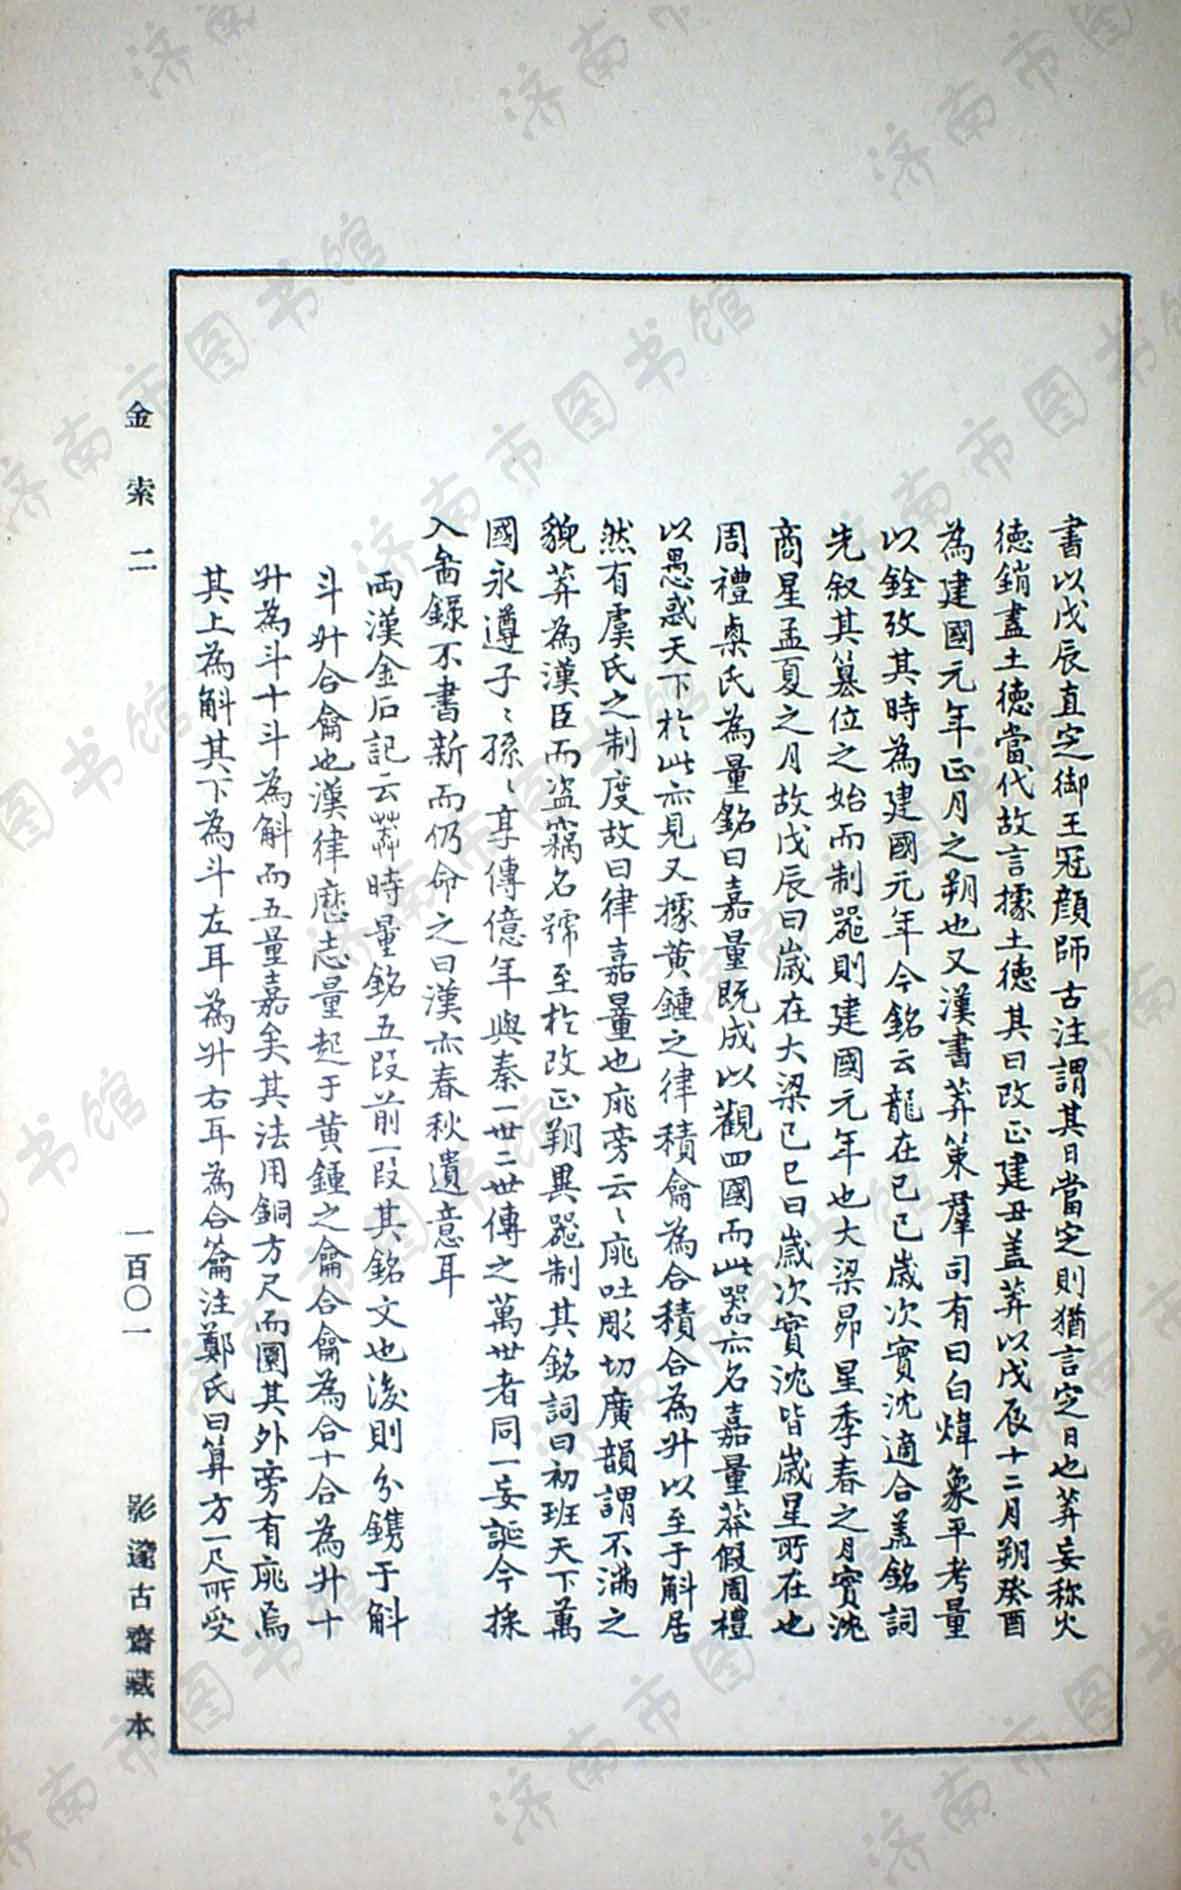 書以戊辰直定御王冠顏師古注謂其日當定則猶言定日也莽妄称火
德銷盡土德當代故言據土德其曰改正建丑蓋莽以戊辰十二月朔癸酉
為建國元年正月之朔也又漢書莽策羣司有曰白煒象平考量
以銓攷其時為建國元年今銘云龍在己巳歲次實沈適合盖銘詞
先叙其篡位之始而制器則建國元年也大梁昴星季春之月實沈
商星孟夏之月故戊辰曰歲在大梁己巳曰歲次實沈皆歲星所在也
周禮㮚氏為量銘曰嘉量既成以觀四國而此器亦名嘉量莽假周禮
以愚惑天下於此亦見又據黄鍾之律積龠為合積合為升以至于斛居
然有虞氏之制度故曰律嘉量也庣旁云〻庣吐彫切廣韻謂不滿之
貌莽為漢臣而盗竊名號至於改正朔異器制其銘詞曰初班天下萬
國永遵子〻孫〻享傳億年與秦一世二世傳之萬世者同一妄誕今採
入啚錄不書新而仍命之曰漢亦春秋遺意耳
兩漢金石記云莽時量銘五段前一段其銘文也後則分鐫于斛
斗升合龠也漢律厯志量起于黄鍾之龠合龠為合十合為升十
升為斗十斗為斛而五量嘉矣其法用銅方尺而圜其外旁有庣焉
其上為斛其下為斗左耳為升右耳為合龠注鄭氏曰算方一尺所受
金索二
一百〇一
影邃古齋藏本
济南市图书馆